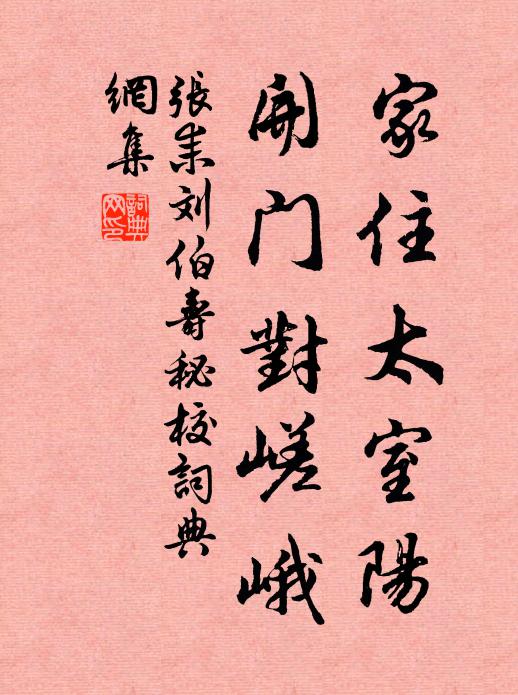 家住太室陽
開門對嵯峨
張耒刘伯壽秘校詞典
網集
詞典网印